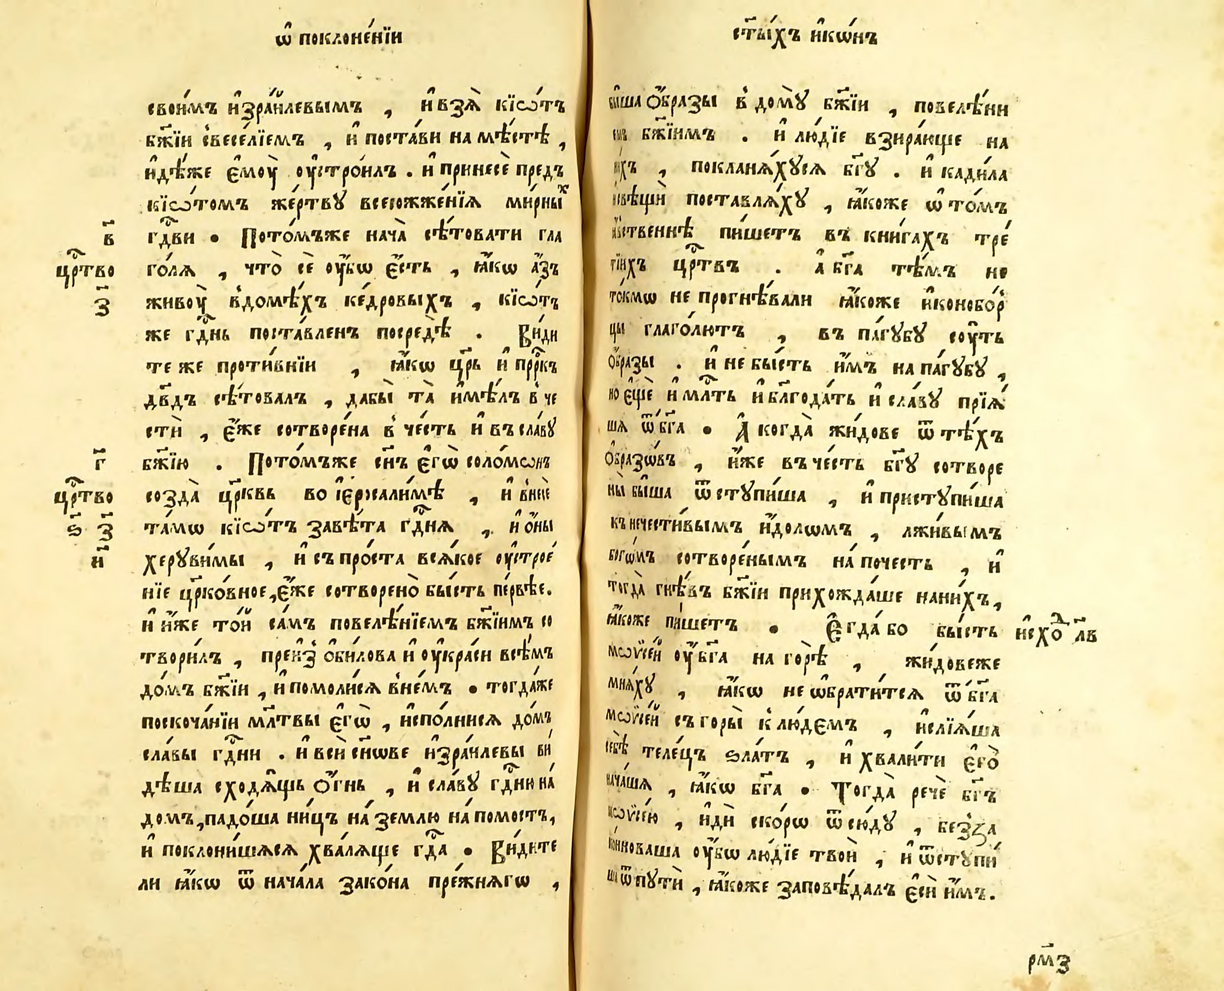 ѡ҆ поклоне́нїи
свои́мъ и҆зра́илевымъ , и҆ взѧ̀ кїѡ́тъ
бж҃їи свеселїемъ , и҆ поста́ви на мѣ́стѣ ,
и҆дѣ́же є҆моу̀ оу҆стро́илъ . и҆ принесѐ предъ
кїѡтомъ же́ртвꙋ всесожже́нїѧ ми́рныⷯ
в҃ гдⷭ҇ви • Пото́мъже нача̀ сѣ́товати гла
црⷭ҇тво го́лѧ , что̀ сѐ оу҆́бѡ є҆́сть , ꙗ҆́кѡ а҆́зъ
з҃ живоу̀ вдомѣ́хъ ке́дровыхъ , кїѡ́тъ
же гдⷭ҇нь поста́вленъ посредѣ̀ . Види
те же проти́внїи , ꙗ҆́кѡ цр҃ь и҆ прⷪ҇ркъ
дв҃дъ сѣ́товалъ , да́бы та̀ и҆мѣ́лъ в че
стѝ , є҆́же сотворе́на в че́сть и҆ въ сла́вꙋ
г҃ бж҃їю . Пото́мъже сн҃ъ є҆гѡ̀ соломѡ́нъ
црⷭ҇тво созда̀ цр҃ковь во і҆ерⷭ҇али́мѣ , и҆ внесе
ѕ҃ з҃ та́мѡ кїѡ́тъ завѣ́та гдⷭ҇нѧ , и҆ ѻ҆ны
и҃ херꙋви́мы , и҆ съ про́ста всѧ́кое оу҆строе́
нїе цр҃ко́вное , є҆́же сотворено̀ бы́сть пе́рвѣе .
и҆ и҆́же то́й са́мъ повелѣ́нїемъ бж҃їимъ со
твори́лъ , преиз̾ ѻ҆би́лова и҆ оу҆кра́си всѣ́мъ
до́мъ бж҃їи , и҆ помоли́сѧ вне́мъ • тогда́же
поскоча́нїи мл҃твы є҆гѡ̀ , и҆спо́лнисѧ до́мъ
сла́вы гдⷭ҇ни . и҆ вси̑ сн҃ове и҆зра́илевы ви́
дѣша сходѧ́щь ѻ҆́гнь , и҆ сла́вꙋ гдⷭ҇ни на́
до́мъ , падо́ша ни́цъ на́ землю на́ помостъ ,
и҆ поклони́шасѧ хвалѧ́ще гдⷭ҇а • Ви́дите
ли ꙗ҆́кѡ ѿ нача́ла зако́на пре́жнѧгѡ ,
ст҃ы́хъ и҆ко́нъ
бы́ша ѻ҆́бразы в домꙋ̀ бж҃їи , повелѣ́ни
емъ бж҃їимъ . и҆ лю́дїе взира́юще на
нихъ , покланѧ́хꙋсѧ бг҃ꙋ . и҆ кади́ла
и҆ свѣщѝ поставлѧ́хꙋ , ꙗ҆́коже ѡ҆ то́мъ
ꙗ҆́вственнѣ пи́шетъ въ кни́гахъ тре́
тїихъ црⷭ҇твъ . а҆ бг҃а тѣ́мъ не
то́кмѡ не прогнѣ́вали ꙗ҆́коже и҆конобо́р
цы глаго́лютъ , въ па́гꙋбꙋ соу́ть
ѻ҆́бразы . и҆ не бы́сть и҆̀мъ на па́гꙋбꙋ ,
но є҆щѐ и҆ млⷭ҇ть и҆ благода́ть и҆ сла́вꙋ прїѧ́
шѧ ѿ бг҃а • А когда̀ жи́дове ѿ тѣ́хъ
ѻ҆́бразѡвъ , и҆́же въ че́сть бг҃ꙋ сотворе
ны бы́ша ѿстꙋпи́ша , и҆ пристꙋпи́ша
къ нечести́вымъ и҆́долѡмъ , лжи́вымъ
богѡ́мъ сотворе́нымъ на́ почесть , и҆
тогда̀ гнѣ́въ бж҃їи прихожда́ше на ни́хъ ,
ꙗ҆́коже пи́шетъ • Є҆гда́ бо бы́сть и҆схо́ⷣ л҃в
мѡѷсе́й оу҆ бг҃а на горѣ̀ , жи́довеже
мнѧ́хꙋ , ꙗ҆́кѡ не ѡ҆брати́тсѧ ѿ бг҃а
мѡѷсе́й съ горы̀ к лю́демъ , и҆слїѧ́ша
себѣ̀ теле́цъ ѕла́тъ , и҆ хвали́ти є҆го̀
нача́шѧ , ꙗ҆́кѡ бг҃а • Тогда̀ речѐ бг҃ъ
мѡѷсе́ю , и҆дѝ ско́рѡ ѿсю́дꙋ , без̾за
ко́нноваша оу҆́бѡ лю́дїе твоѝ , и҆ ѿстꙋпи́
ша ѿ пꙋтѝ , ꙗ҆́коже заповѣ́далъ є҆сѝ и҆̀мъ .
рм҃з